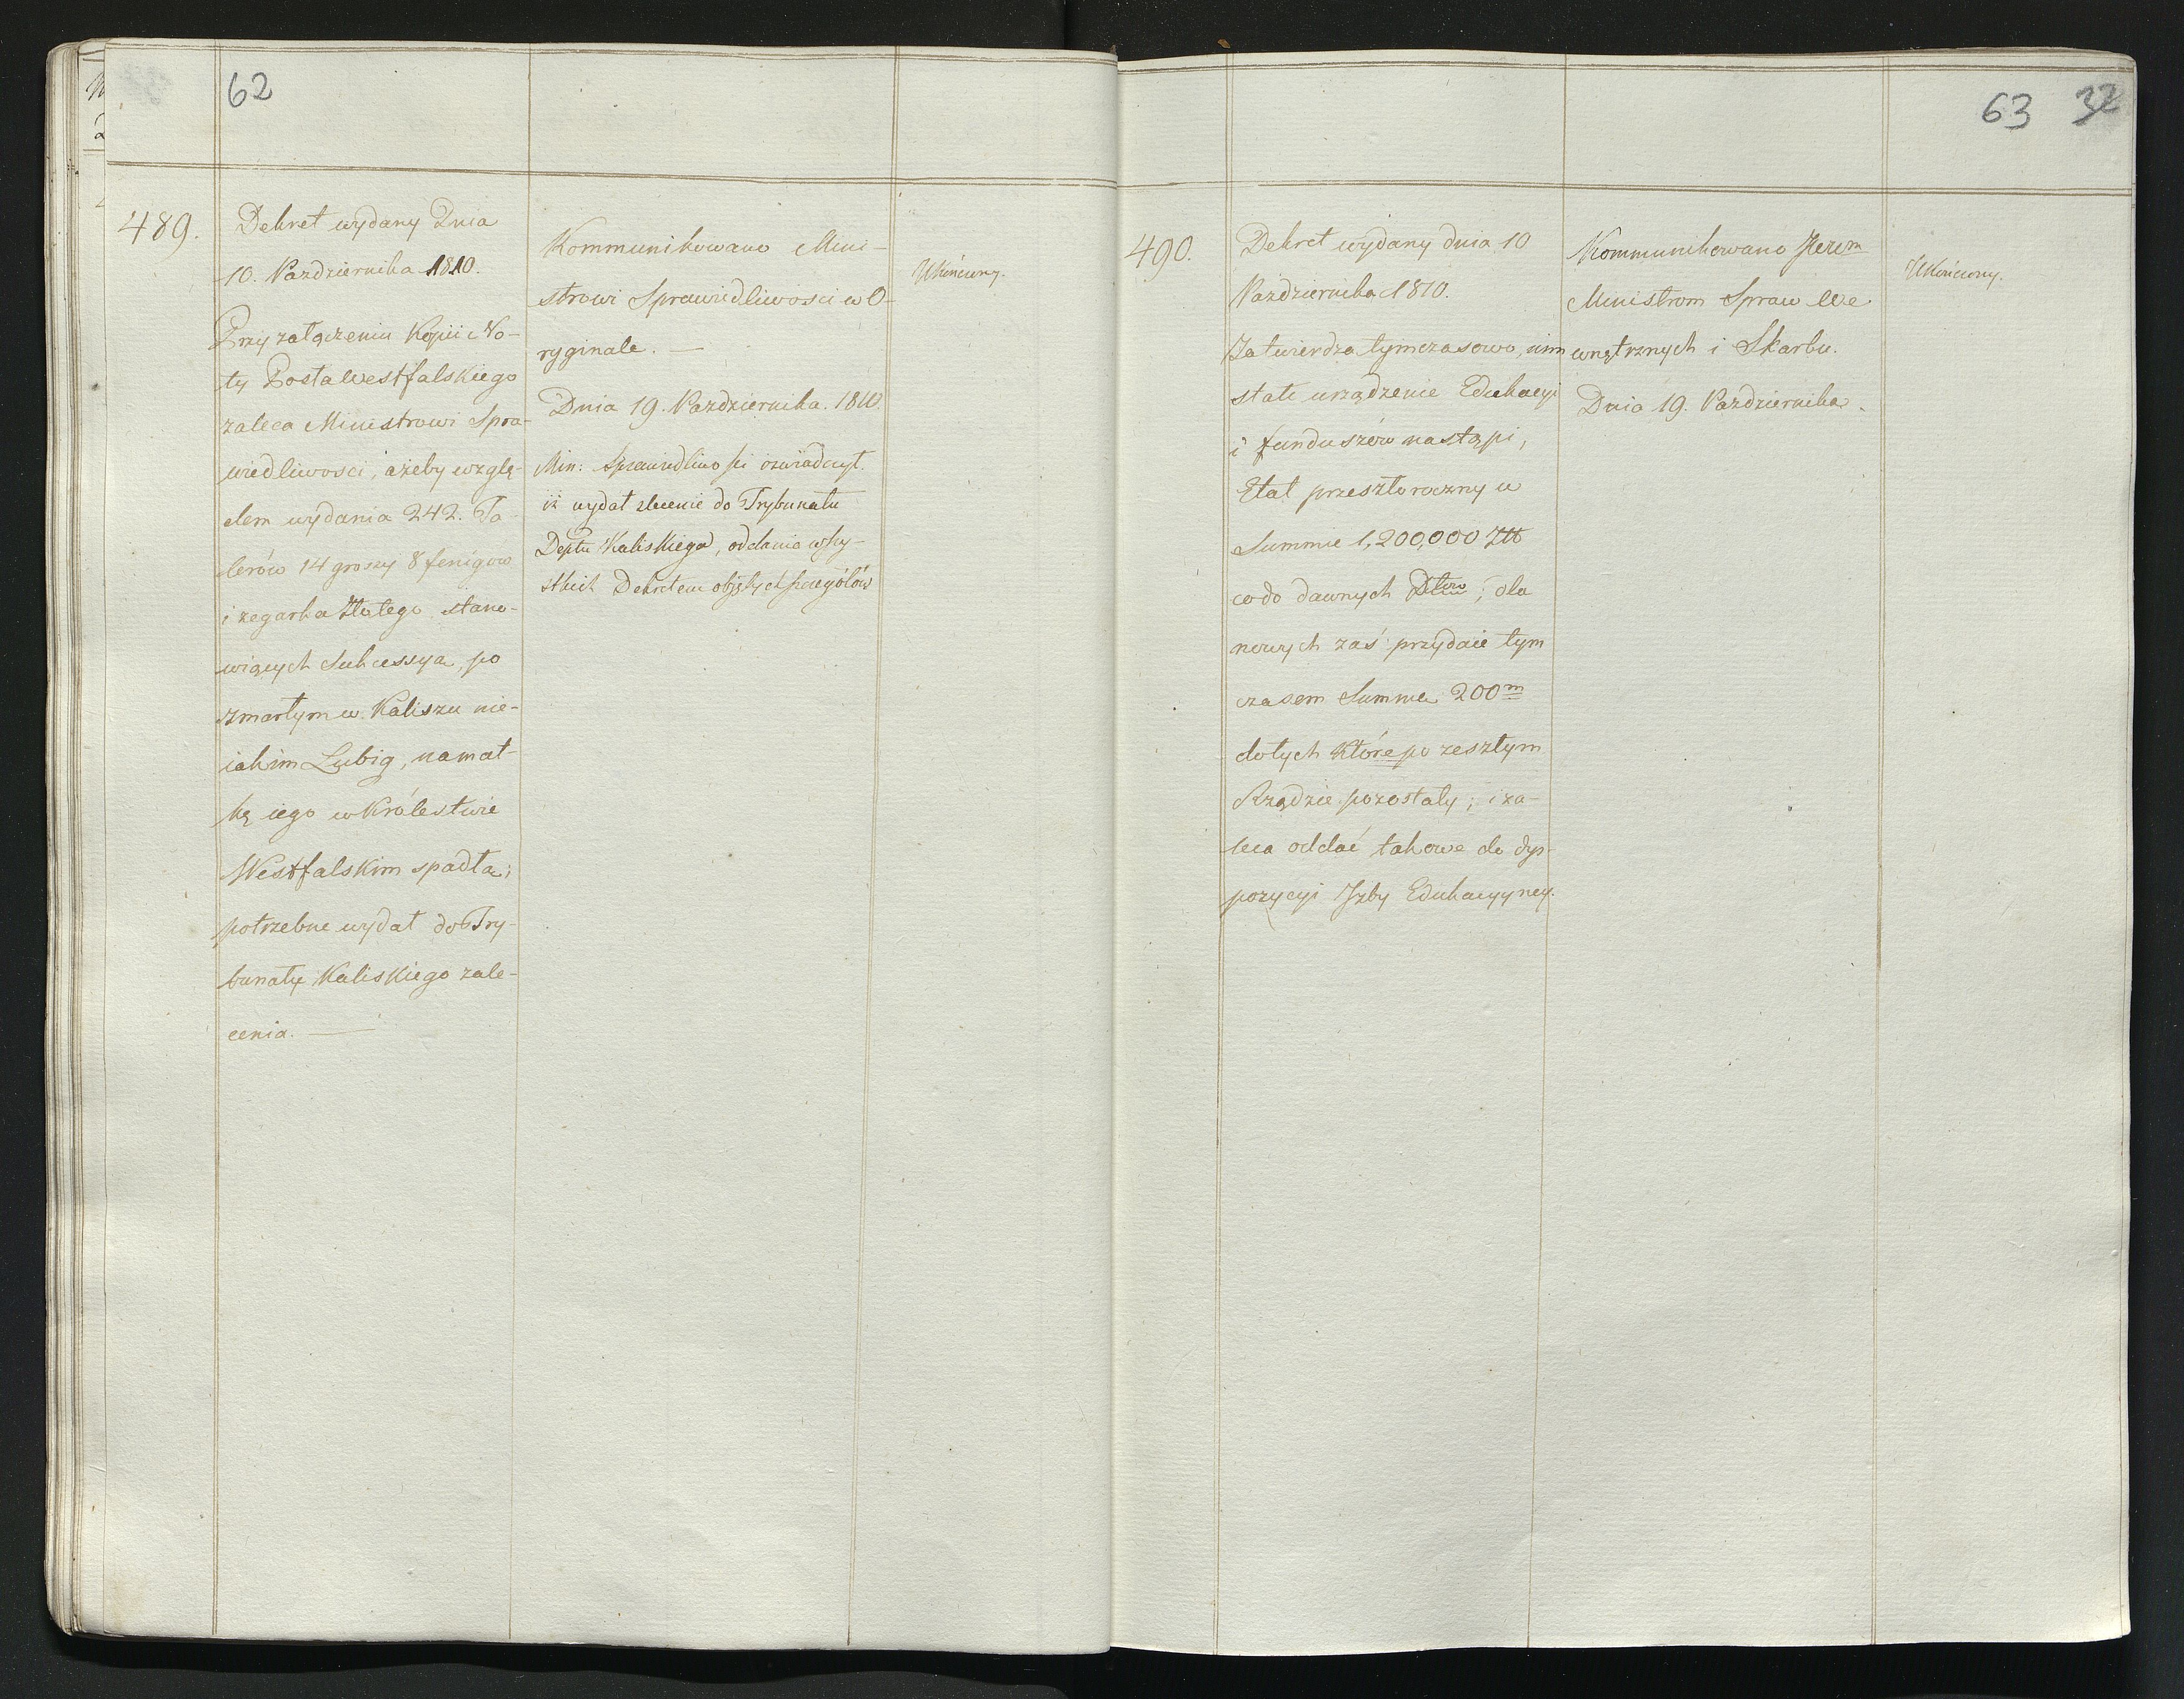 62
489.
Dekret wydany Dnia
10. Pazdziernika 1810.
Przy załączeniu Kopii No-
ty Posła Westfalskiego
zaleca Ministrowi Spra-
wiedliwosci, ażeby wzglę-
dem wydania 242. Ta-
lerów 14 groszy 8 fenigow
i zegarka złotego stano-
wiących Sukcessya, po
zmarłym w Kaliszu nie-
iakim Lubig, na mat-
kę iego w Królestwie
Westfalskim spadła;
potrzebne wydał do Try-
bunału Kaliskiego zale-
cenia. —
Kommunikowano Mini-
strowi Sprawiedliwosci w O-
ryginale. —
Dnia 19. Pazdziernika. 1810.
Min: Sprawiedliwości oswiadczył
iż wydał zlecenie do Trybunału
Deptu Kaliskiego, oddania wszy-
stkich Dekretem objętych szczegółów
Ukończony.
63 32
490.
Dekret wydany dnia 10
Pazdziernika 1810.
Zatwierdza tymczasowo, nim
stałe urządzenie Edukacyi
i funduszów nastąpi,
Etat przeszłoroczny w
Summie 1,200,000 Złł
co do dawnych Dtów; dla
nowych zaś przydaie tym
czasem Summę 200m
do tych które po zeszłym
Rządzie pozostały; i za-
leca oddać takowe do dys-
pozycyi Izby Edukacyyney.
Kommunikowano
Ministrom Spraw We-
wnętrznych i Skarbu.
Dnia 19. Pazdziernika.
Ukończony.